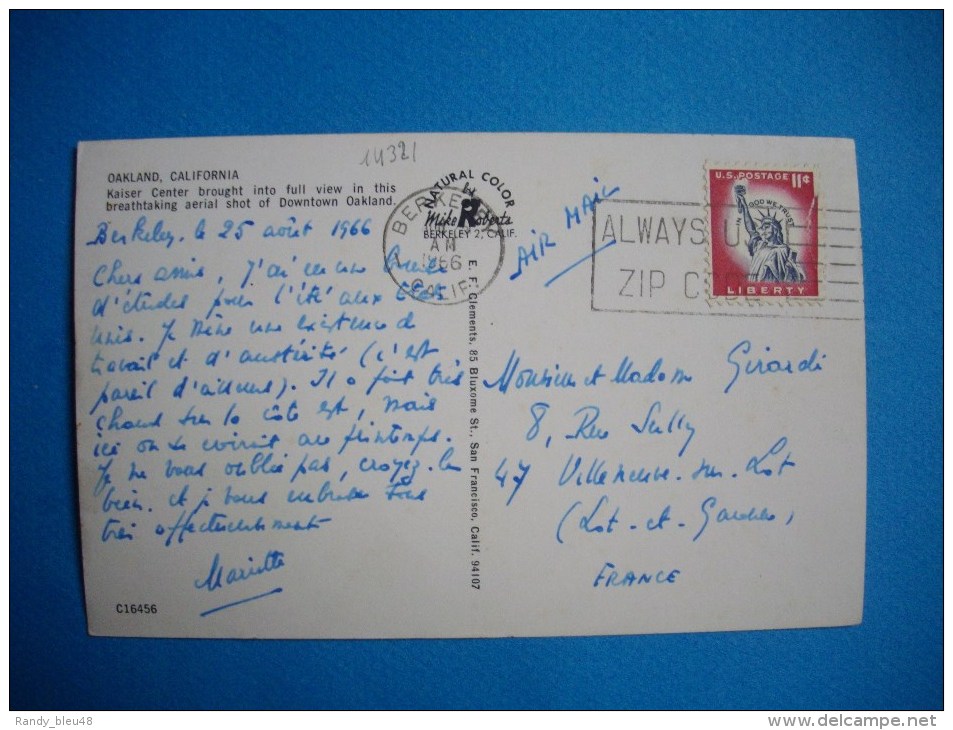 14321
OAKLAND, CALIFORNIA
Kaiser Center brought into full view in this
breathtaking aerial shot of Downtown Oakland.
Berkeley, le 25 août 1966
Chers amis, J'ai eu une bourse
d'études pour l'été aux états
unis. Je mène une existence de
travail et d'austérité (c'est
pareil d'ailleurs). Il a fait très
chaud sur la côte est, mais
ici on se croirait au printemps.
Je ne vous oublie pas, croyez-le
bien. et je vous embrasse tous
très affectueusement
Mariette
C16456
NATURAL COLOR
Mike Roberts
BERKELEY 2, CALIF.
BERKELEY
AM
1966
CALIF
E. F. Clements, 85 Bluxome St., San Francisco, Calif. 94107
AIR MAIL
ALWAYS U
ZIP CODE
U.S. POSTAGE 11¢
IN GOD WE TRUST
LIBERTY
Monsieur et Madame Girardi
8, Rue Sully
47 Villeneuve-sur-Lot
(Lot-et-Garonne)
FRANCE
Randy_bleu48
http://www.delcampe.net